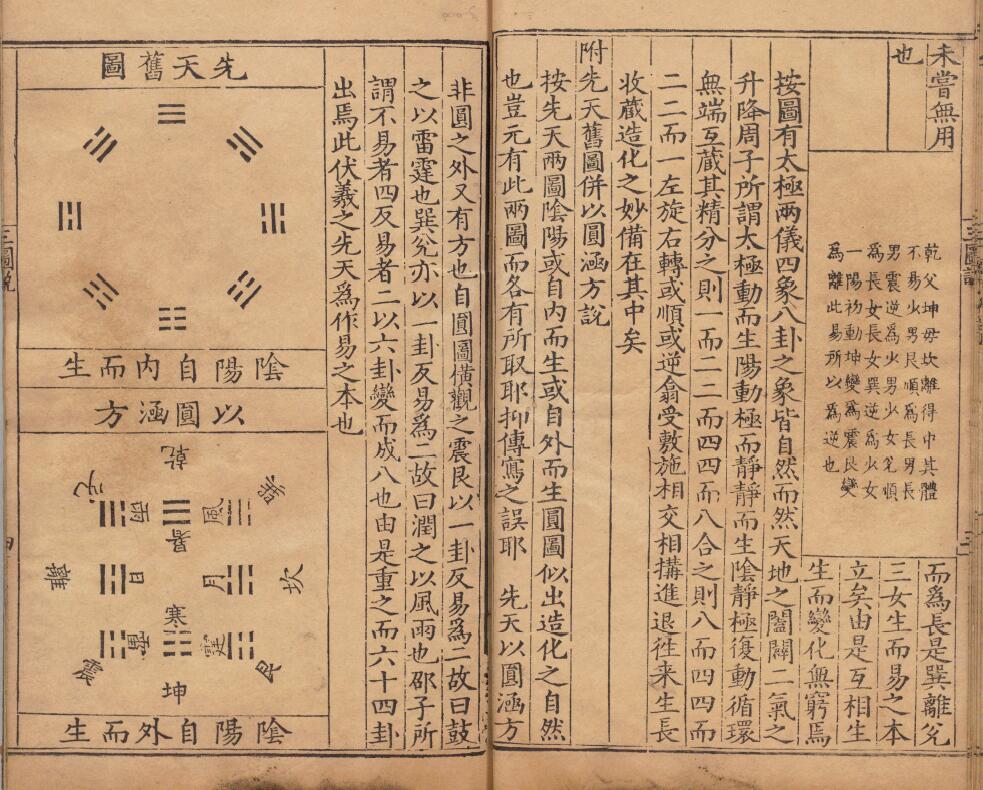 未嘗無用
也
乾父坤母坎離得中其體
不易少男艮順為長男長
男震逆為少男少女兊順
為長女長女巽逆為少女
一陽初動坤變為震艮變
為離此易所以為逆也
而為長是巽離兊
三女生而易之本
立矣由是互相生
生而變化無窮焉
按圖有太極兩儀四象八卦之象皆自然而然天地之闔闢二氣之
升降周子所謂太極動而生陽動極而靜靜而生陰靜極復動循環
無端互藏其精分之則一而二二而四四而八合之則八而四四而
二二而一左旋右轉或順或逆翕受敷施相交相搆進退徃来生長
收藏造化之妙備在其中矣
附先天舊圖併以圓涵方説
按先天兩圖陰陽或自内而生或自外而生圓圖似出造化之自然
也豈元有此兩圖而各有所取耶抑傳寫之誤耶 先天以圓涵方
非圓之外又有方也自圓圖橫觀之震艮以一卦反易為二故曰鼓
之以雷霆也巽兊亦以一卦反易為二故曰潤之以風雨也邵子所
謂不易者四反易者二以六卦變而成八也由是重之而六十四卦
出焉此伏羲之先天為作易之本也
先天舊圖
陰陽自内而生
以圓涵方
乾
兊
巽
雨
風
暑
離
日
月
坎
寒
雷
霆
震
艮
坤
陰陽自外而生
三圖説